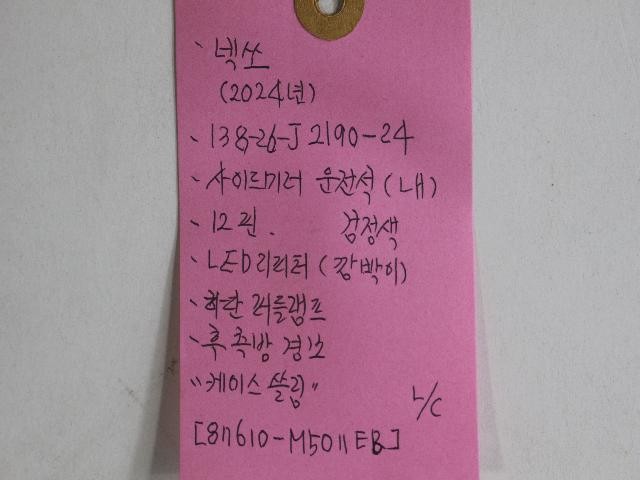 - 넥쏘
(2024년)
- 138-26-J2190-24
- 사이드미러 운전석 (내)
- 12핀. 검정색
- LED리피터 (깜박이)
- 하단 퍼들램프
- 후측방 경보
"케이스 쓸림"
L/C
[87610-M5011EB]